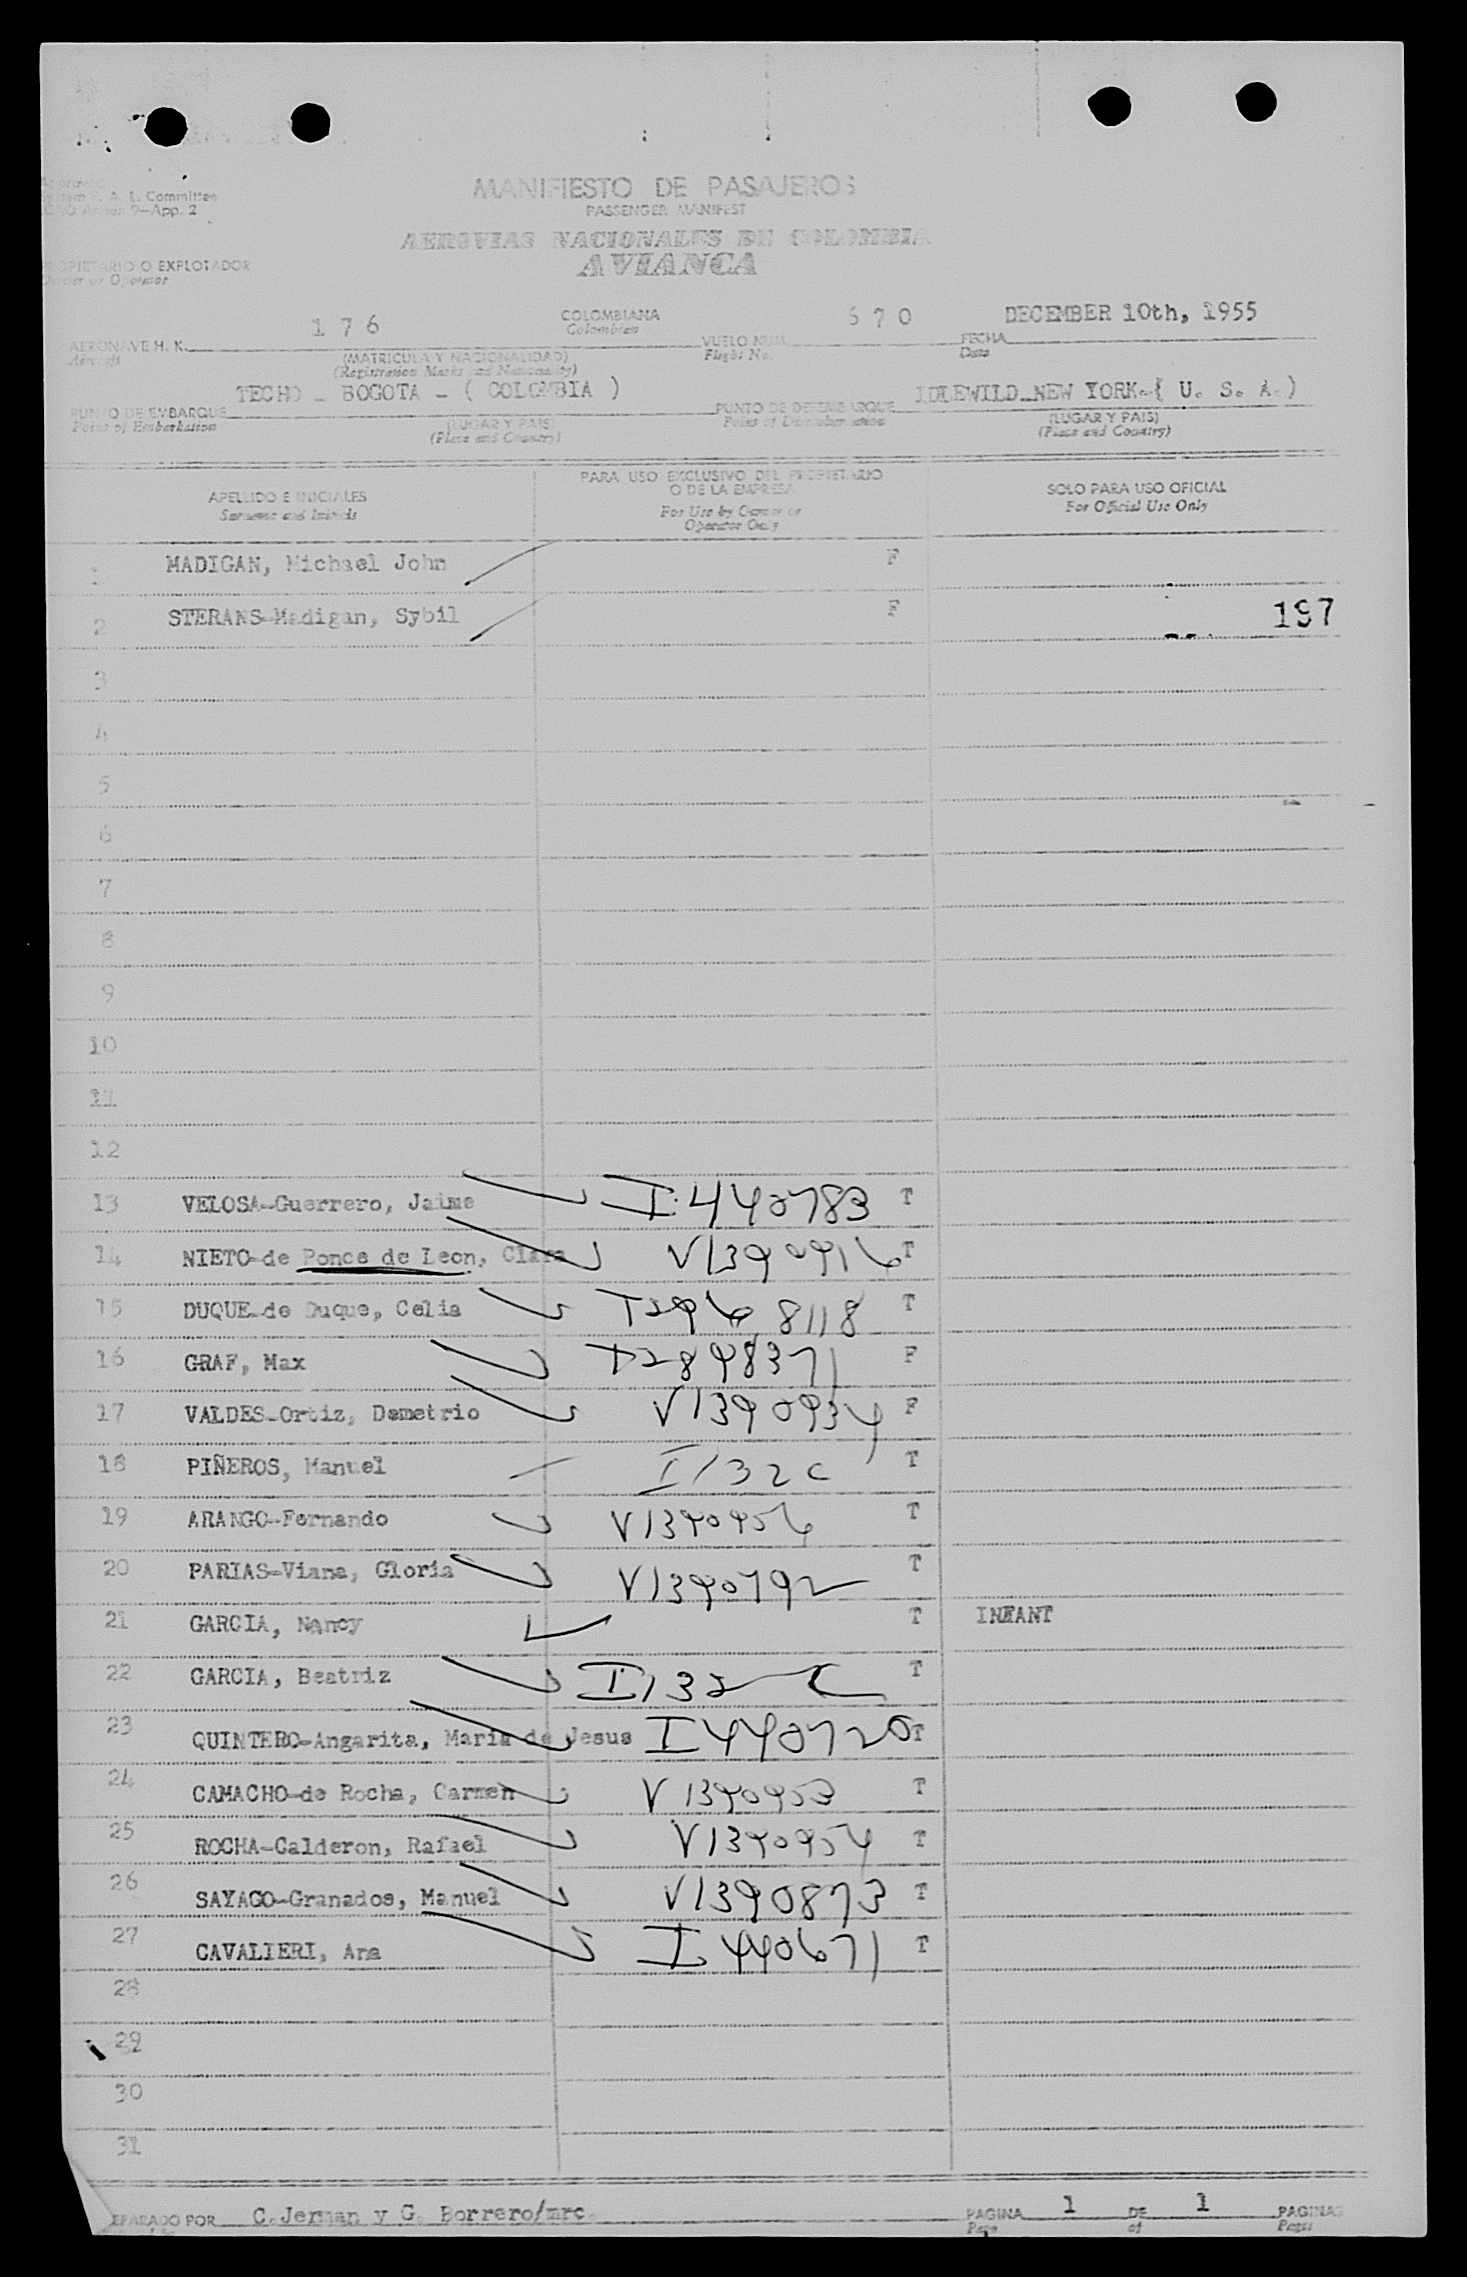 L. Committee
9-App. 2
MANIFIESTO DE PASAJEROS
PASSENGER MANIFEST
AEROVIAS NACIONALES DE COLOMBIA
AVIANCA
PROPIETARIO O EXPLOTADOR
Owner or Operator
176 COLOMBIANA 670 DECEMBER 10th, 1955
AERONAVE H. K. Colombian VUELO NUM. FECHA
Aircraft (MATRICULA Y NACIONALIDAD) Flight No. Date
(Registration Marks and Nationality)
TECHO - BOGOTA - ( COLOMBIA ) IDLEWILD-NEW YORK-( U. S. A. )
PUNTO DE EMBARQUE PUNTO DE DESEMBARQUE
Point of Embarkation (LUGAR Y PAIS) Point of Disembarkation (LUGAR Y PAIS)
(Place and Country) (Place and Country)
APELLIDO E INICIALES PARA USO EXCLUSIVO DEL PROPIETARIO SOLO PARA USO OFICIAL
Surname and Initials O DE LA EMPRESA For Official Use Only
For Use by Owner or
Operator Only
1 MADIGAN, Michael John F
2 STERANS-Madigan, Sybil F 197
3
4
5
6
7
8
9
10
11
12
13 VELOSA-Guerrero, Jaime I-440783 T
14 NIETO-de Ponce de Leon, Clara V1390916 T
15 DUQUE-de Duque, Celia 8118 T
16 GRAF, Max F
17 VALDES-Ortiz, Demetrio V1390934 F
18 PIÑEROS, Manuel I132C T
19 ARANGO-Fernando V1390956 T
20 PARIAS-Viana, Gloria V1390792 T
21 GARCIA, Nancy T INFANT
22 GARCIA, Beatriz I132C T
23 QUINTERO-Angarita, Maria de Jesus I440720 T
24 CAMACHO-de Rocha, Carmen V1390953 T
25 ROCHA-Calderon, Rafael V1390954 T
26 SAYAGO-Granados, Manuel V1390873 T
27 CAVALIERI, Ana I-440671 T
28
29
30
31
PREPARADO POR C.Jerman y G. Borrero/mrc. PAGINA 1 DE 1 PAGINAS
Page of Pages